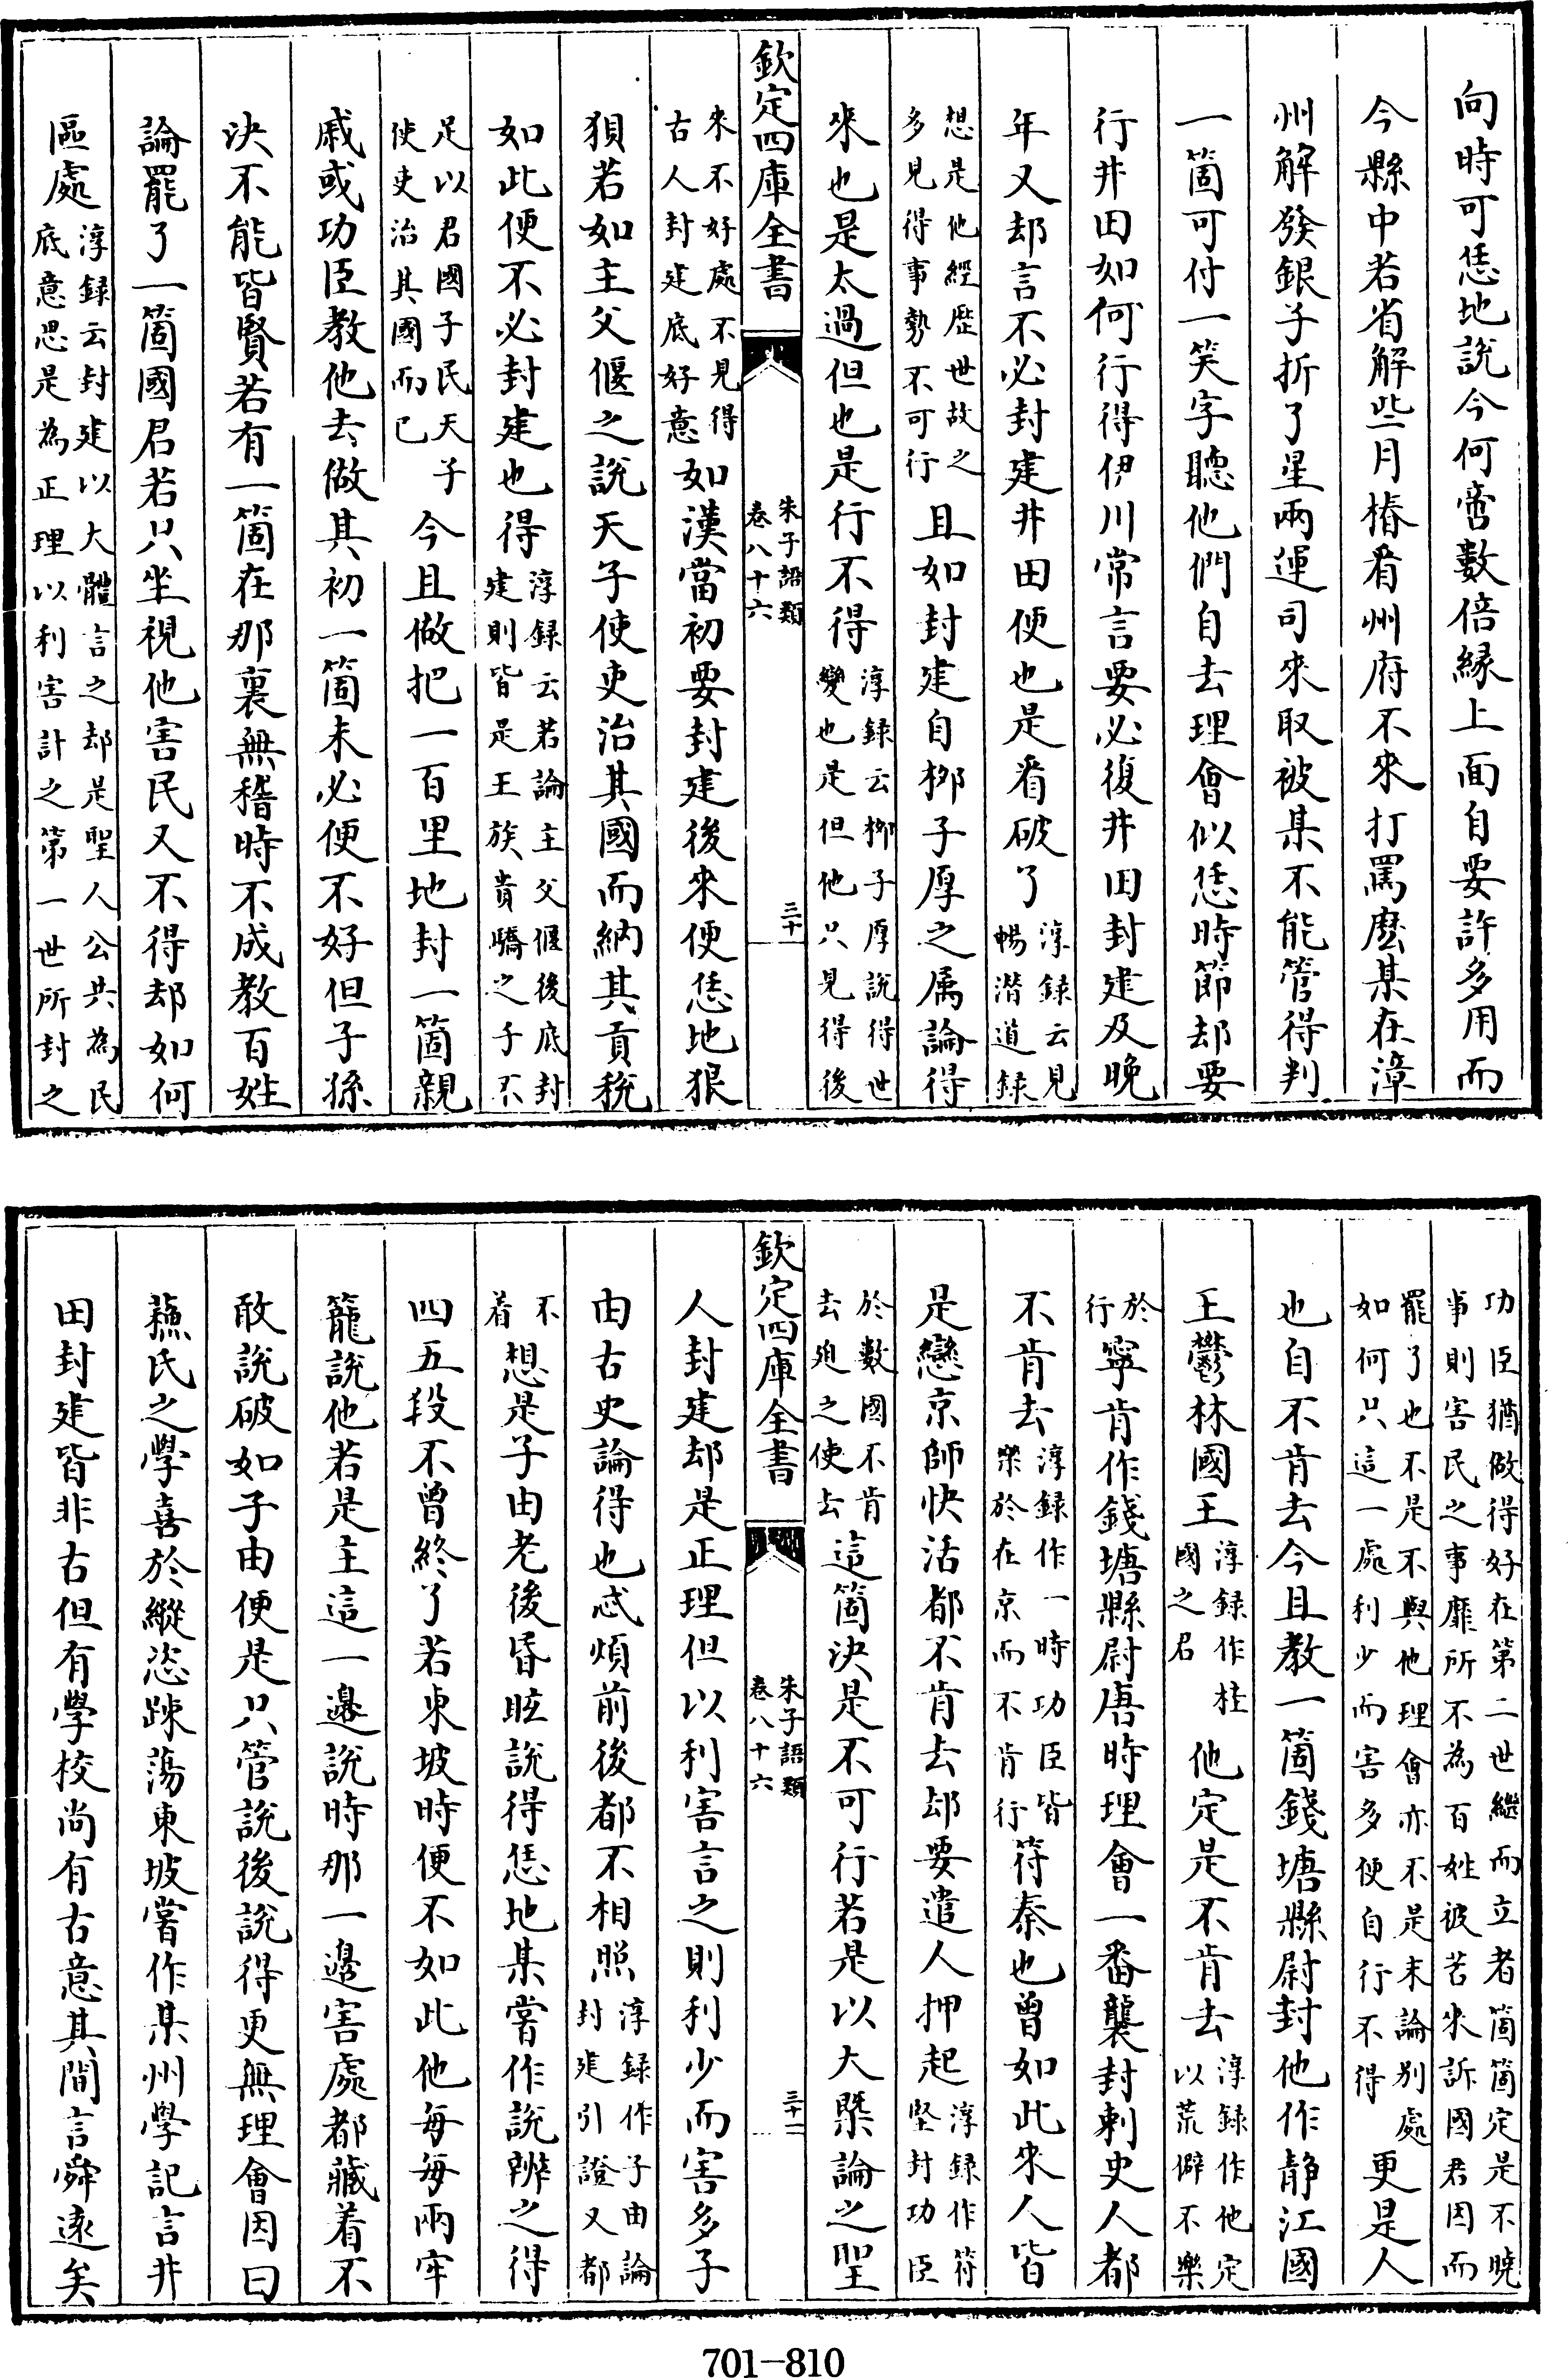 向時可恁地說今何啻數倍緣上面自要許多用而
今縣中若省解些月樁看州府不來打罵麽某在漳
州解發銀子折了星兩運司來取被某不能管得判
一箇可付一笑字聽他們自去理會似恁時節却要
行井田如何行得伊川常言要必復井田封建及晚
年又却言不必封建井田便也是看破了淳録云見暢潛道録
想是他經歴世故之多見得事勢不可行且如封建自栁子厚之屬論得
來也是太過但也是行不得淳録云栁子厚說得世變也是但他只見得後
欽定四庫全書
朱子語類
卷八十六
三十一
來不好處不見得古人封建底好意如漢當初要封建後來便恁地狠
狽若如主父偃之說天子使吏治其國而納其貢稅
如此便不必封建也得淳録云若論主父偃後底封建則皆是王族貴驕之子不
足以君國子民天子使吏治其國而已今且做把一百里地封一箇親
戚或功臣教他去做其初一箇未必便不好但子孫
決不能皆賢若有一箇在那裏無稽時不成教百姓
論罷了一箇國君若只坐視他害民又不得却如何
區處淳録云封建以大體言之却是聖人公共為民底意思是為正理以利害計之第一世所封之
功臣猶做得好在第二世繼而立者箇箇定是不曉事則害民之事靡所不為百姓被苦來訴國君因而
罷了也不是不與他理會亦不是未論别處如何只這一處利少而害多便自行不得更是人
也自不肯去今且教一箇錢塘縣尉封他作静江國
王鬱林國王淳録作桂國之君他定是不肯去淳録作他定以荒僻不樂
於行寧肯作錢塘縣尉唐時理會一番襲封刺史人都
不肯去淳録作一時功臣皆樂於在京而不肯行符秦也曾如此來人皆
是戀京師快活都不肯去却要遣人押起淳録作符堅封功臣
於數國不肯去廹之使去這箇決是不可行若是以大槩論之聖
欽定四庫全書
朱子語類
卷八十六
三十二
人封建却是正理但以利害言之則利少而害多子
由古史論得也忒煩前後都不相照淳録作子由論封建引證又都
不着想是子由老後昏眩說得恁地某嘗作說辨之得
四五段不曾終了若東坡時便不如此他每每兩牢
籠說他若是主這一邊說時那一邊害處都藏着不
敢說破如子由便是只管說後說得更無理會因曰
蘓氏之學喜於縱恣踈蕩東坡嘗作某州學記言井
田封建皆非古但有學校尚有古意其間言舜遠矣
701-810